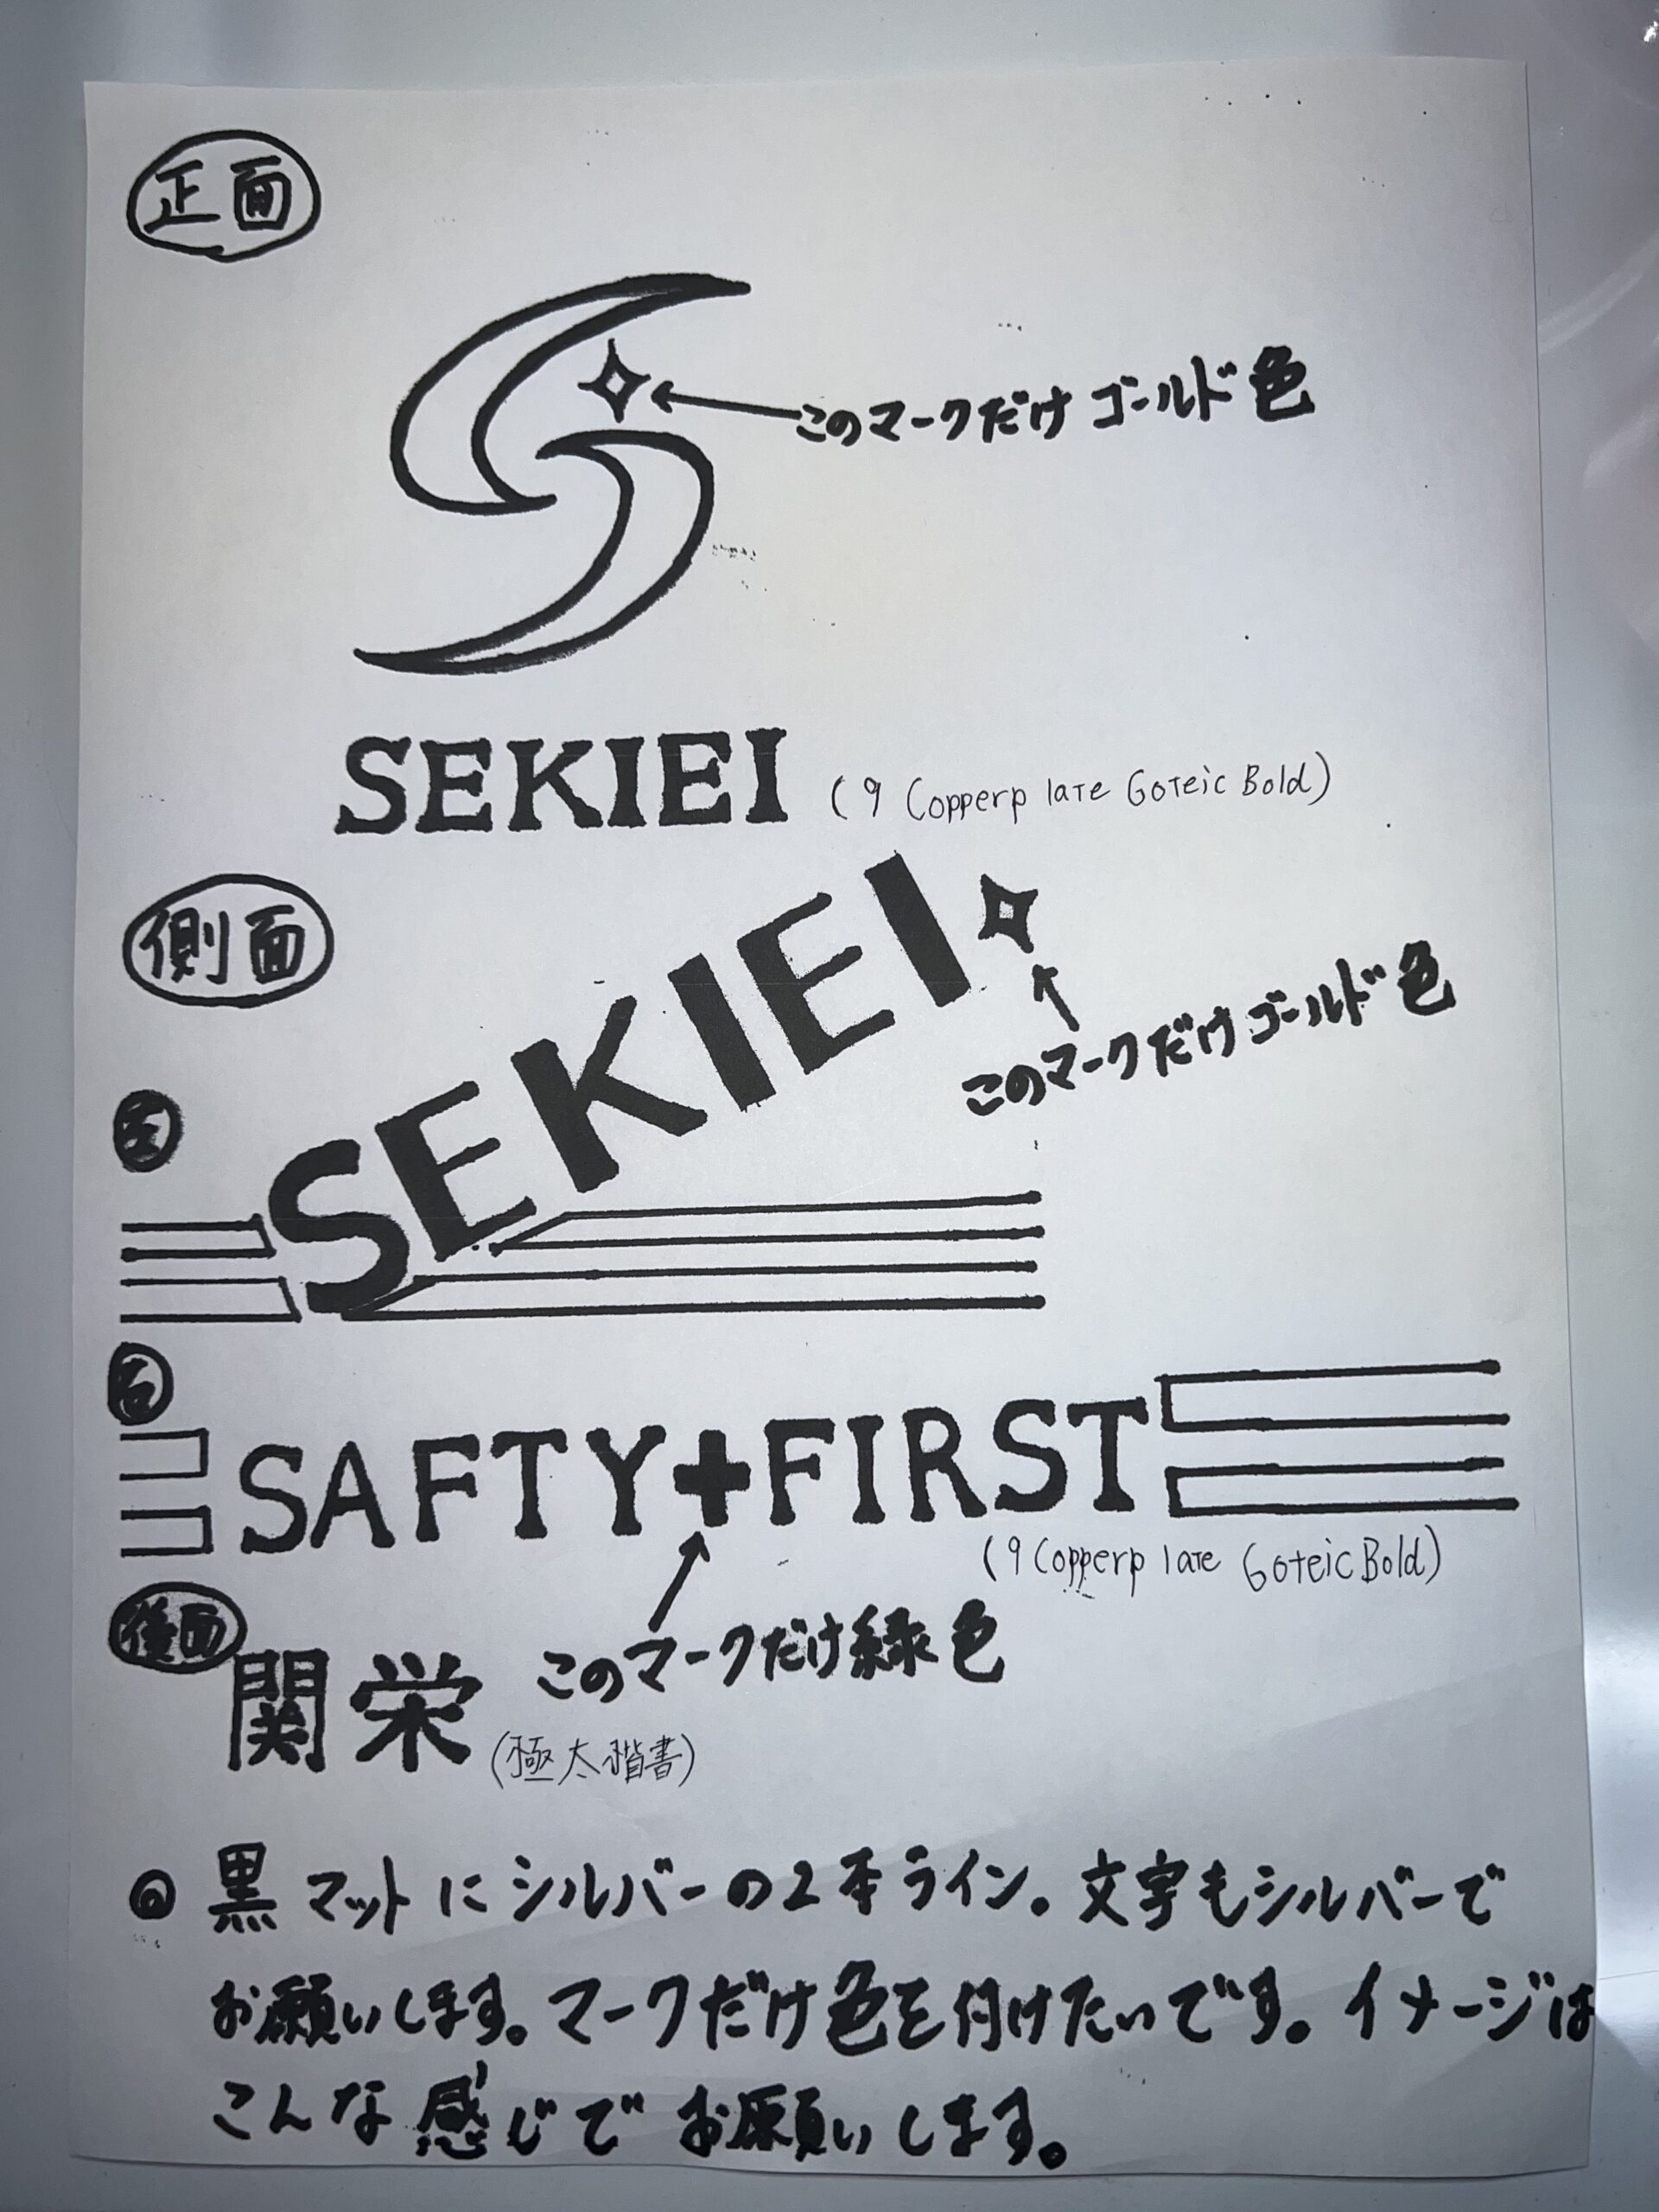 正面
このマークだけゴールド色
SEKIEI (9 Copperp late Goteic Bold)
側面
SEKIEI
このマークだけゴールド色
左
右
SAFTY+FIRST
(9 Copperp late Goteic Bold)
後面
関栄 このマークだけ緑色
(極太楷書)
◎ 黒マットにシルバーの2本ライン。文字もシルバーで
お願いします。マークだけ色を付けたいです。イメージは
こんな感じでお願いします。